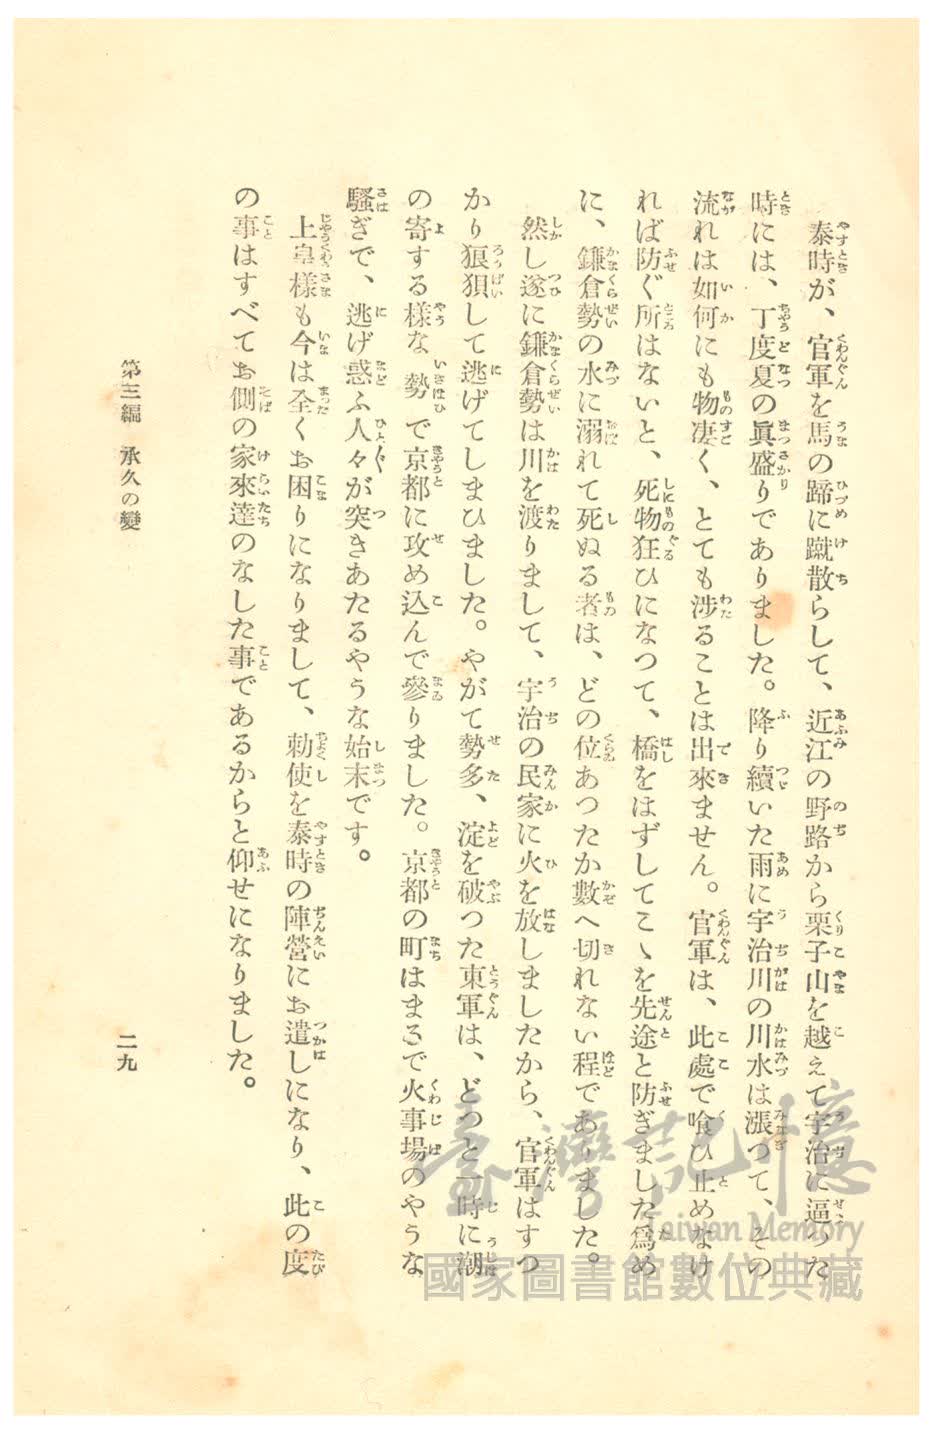 泰時が、官軍を馬の蹄に蹴散らして、近江の野路から栗子山を越えて宇治に逼つた
時には、丁度夏の眞盛りでありました。降り續いた雨に宇治川の川水は漲つて、その
流れは如何にも物凄く、とても涉ることは出來ません。官軍は、此處で喰ひ止めなけ
れば防ぐ所はないと、死物狂ひになつて、橋をはずしてこゝを先途と防ぎました爲め
に、鎌倉勢の水に溺れて死ぬる者は、どの位あつたか數へ切れない程でありました。
然し遂に鎌倉勢は川を渡りまして、宇治の民家に火を放しましたから、官軍はすつ
かり狼狽して逃げてしまひました。やがて勢多、淀を破つた東軍は、どつと一時に潮
の寄する樣な勢で京都に攻め込んで參りました。京都の町はまるで火事場のやうな
騷ぎで、逃げ惑ふ人々が突きあたるやうな始末です。
上皇樣も今は全くお困りになりまして、勅使を泰時の陣營にお遣しになり、此の度
の事はすべてお側の家來達のなした事であるからと仰せになりました。
第三編 承久の變
二九
臺灣記憶
Taiwan Memory
國家圖書館數位典藏